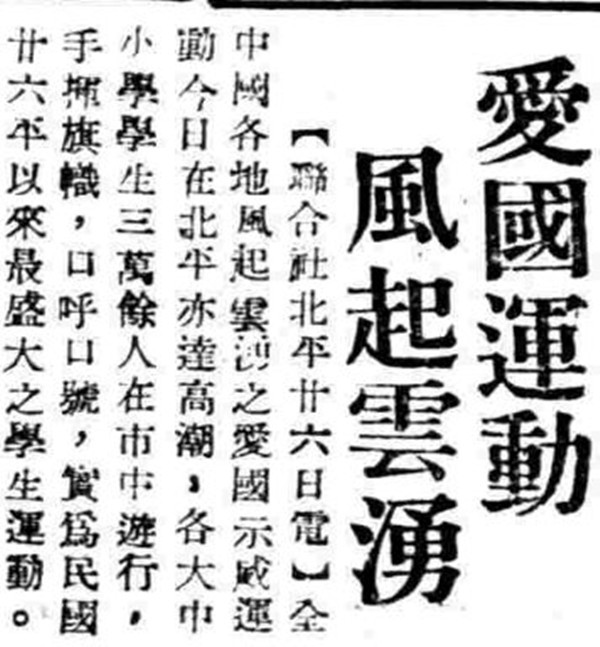 愛國運動
風起雲湧
【聯合社北平廿六日電】全
中國各地風起雲湧之愛國示威運
動今日在北平亦達高潮，各大中
小學學生三萬餘人在市中遊行，
手揮旗幟，口呼口號，實爲民國
廿六年以來最盛大之學生運動。